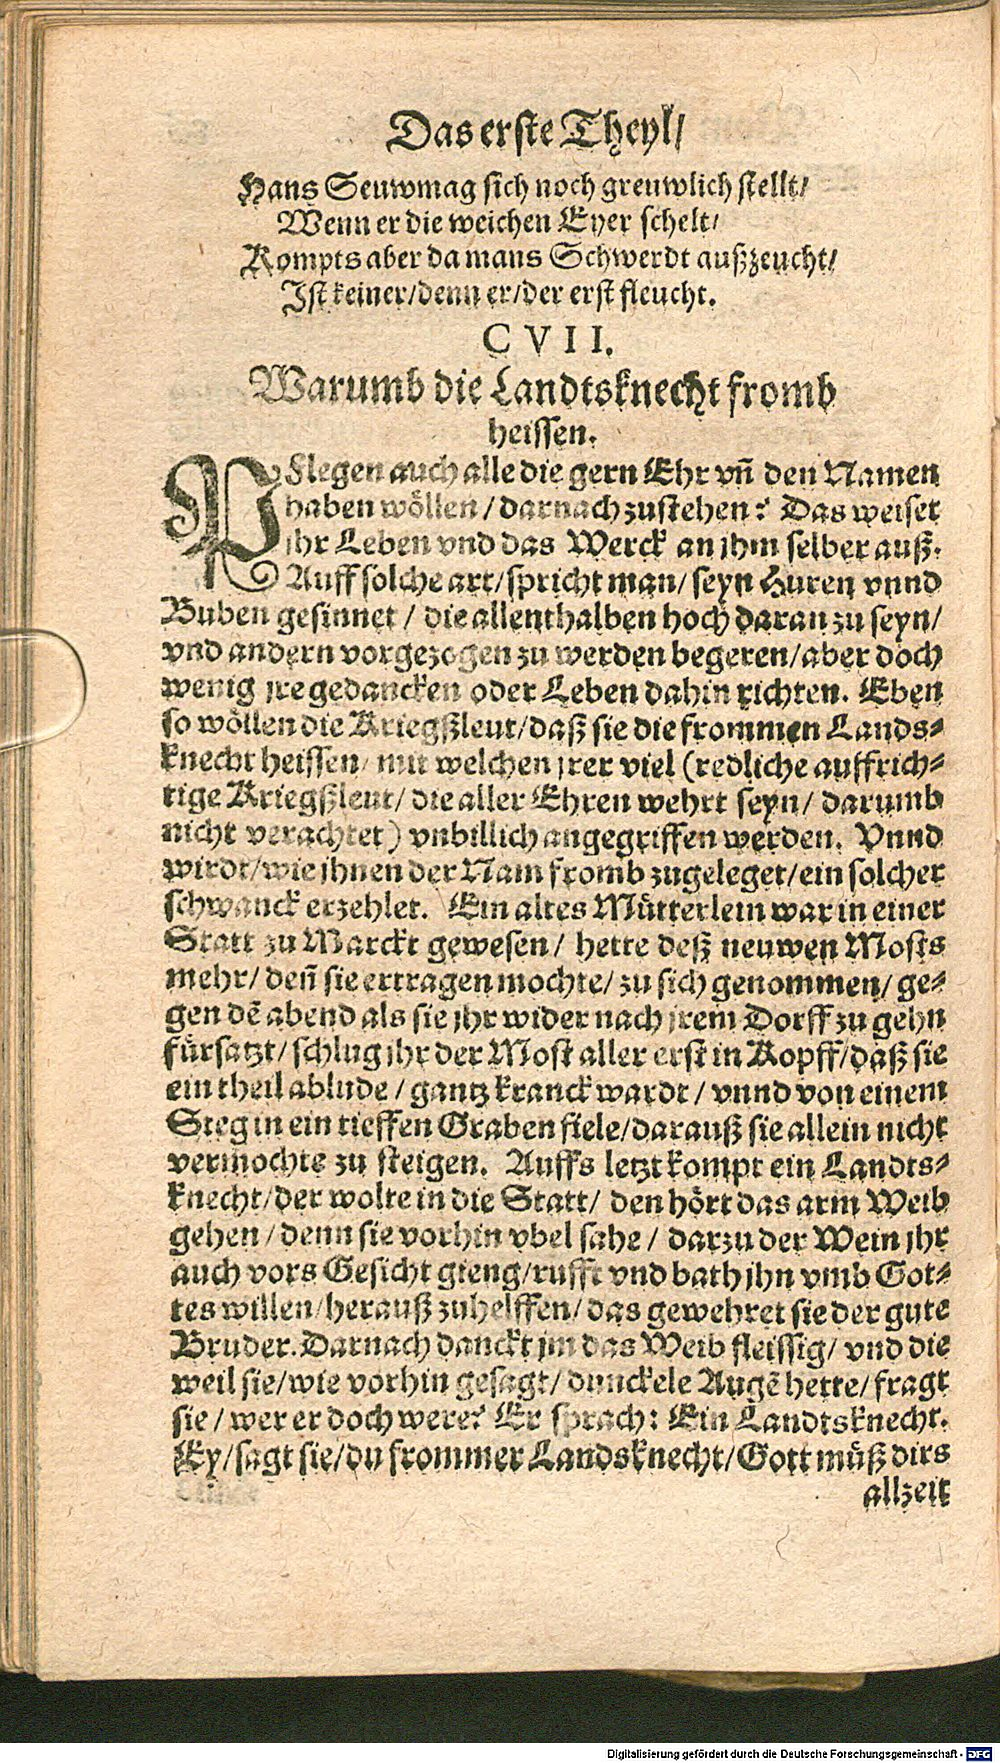 Das erste Theyl/
Hans Seuwmag sich noch greuwlich stellt/
Wenn er die weichen Eyer schelt/
Kompts aber da mans Schwerdt außzeucht/
Ist keiner/denn er/der erst fleucht.
CVII.
Warumb die Landtsknecht fromb
heissen.
PFlegen auch alle die gern Ehr vñ den Namen
haben wöllen / darnach zustehen? Das weiset
ihr Leben vnd das Werck an jhm selber auß.
Auff solche art/spricht man/ seyn Huren vnnd
Buben gesinnet / die allenthalben hoch daran zu seyn/
vnd andern vorgezogen zu werden begeren/aber doch
wenig jre gedancken oder Leben dahin richten. Eben
so wöllen die Kriegßleut/daß sie die frommen Lands-
knecht heissen/ mit welchen jrer viel (redliche auffrich-
tige Kriegßleut/ die aller Ehren wehrt seyn/ darumb
nicht verachtet) vnbillich angegriffen werden. Vnnd
wirdt/wie ihnen der Nam fromb zugeleget/ein solcher
schwanck erzehlet. Ein altes Mütterlein war in einer
Statt zu Marckt gewesen/ hette deß neuwen Mosts
mehr/ deñ sie ertragen mochte/ zu sich genommen/ ge-
gen dẽ abend als sie jhr wider nach jrem Dorff zu gehn
fürsatzt/ schlug jhr der Most aller erst in Kopff/daß sie
ein theil ablude / gantz kranck wardt / vnnd von einem
Steg in ein tieffen Graben fiele/darauß sie allein nicht
vermochte zu steigen. Auffs letzt kompt ein Landts-
knecht/der wolte in die Statt/ den hört das arm Weib
gehen / denn sie vorhin vbel sahe / darzu der Wein jhr
auch vors Gesicht gieng/rufft vnd bath jhn vmb Got-
tes willen/herauß zuhelffen/ das gewehret sie der gute
Bruder. Darnach danckt jm das Weib fleissig/ vnd die
weil sie/wie vorhin gesagt/ dunckele Augẽ hette/ fragt
sie / wer er doch were? Er sprach: Ein Landtsknecht.
Ey/sagt sie/du frommer Landsknecht/Gott müß dirs
allzeit
Digitalisierung gefördert durch die Deutsche Forschungsgemeinschaft - DFG